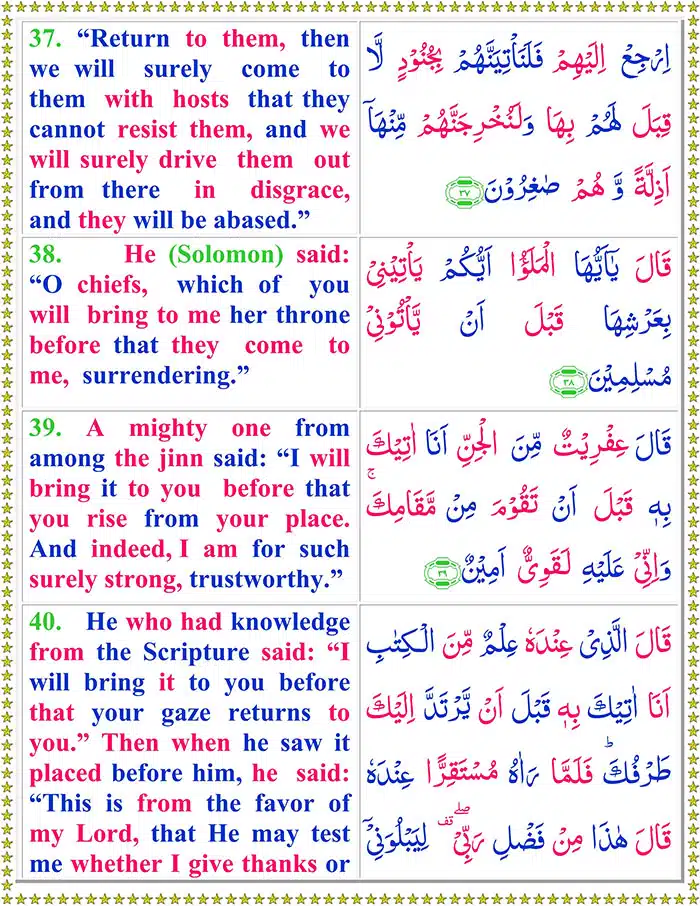 37. “Return to them, then
we will surely come to
them with hosts that they
cannot resist them, and we
will surely drive them out
from there in disgrace,
and they will be abased.”
اِرْجِعْ اِلَيْهِمْ فَلَنَاْتِيَنَّهُمْ بِجُنُوْدٍ لَّا
قِبَلَ لَهُمْ بِهَا وَلَنُخْرِجَنَّهُمْ مِّنْهَاۤ
اَذِلَّةً وَّ هُمْ صٰغِرُوْنَ ﴿۳۷﴾
38. He (Solomon) said:
“O chiefs, which of you
will bring to me her throne
before that they come to
me, surrendering.”
قَالَ يٰۤاَيُّهَا الْمَلَؤُا اَيُّكُمْ يَاْتِيْنِيْ
بِعَرْشِهَا قَبْلَ اَنْ يَّاْتُوْنِيْ
مُسْلِمِيْنَ ﴿۳۸﴾
39. A mighty one from
among the jinn said: “I will
bring it to you before that
you rise from your place.
And indeed, I am for such
surely strong, trustworthy.”
قَالَ عِفْرِيْتٌ مِّنَ الْجِنِّ اَنَا اٰتِيْكَ
بِهٖ قَبْلَ اَنْ تَقُوْمَ مِنْ مَّقَامِكَ ۚ
وَاِنِّيْ عَلَيْهِ لَقَوِيٌّ اَمِيْنٌ ﴿۳۹﴾
40. He who had knowledge
from the Scripture said: “I
will bring it to you before
that your gaze returns to
you.” Then when he saw it
placed before him, he said:
“This is from the favor of
my Lord, that He may test
me whether I give thanks or
قَالَ الَّذِيْ عِنْدَهٗ عِلْمٌ مِّنَ الْكِتٰبِ
اَنَا اٰتِيْكَ بِهٖ قَبْلَ اَنْ يَّرْتَدَّ اِلَيْكَ
طَرْفُكَ ؕ فَلَمَّا رَاٰهُ مُسْتَقِرًّا عِنْدَهٗ
قَالَ هٰذَا مِنْ فَضْلِ رَبِّيْ ۖۗ لِيَبْلُوَنِيْۤ